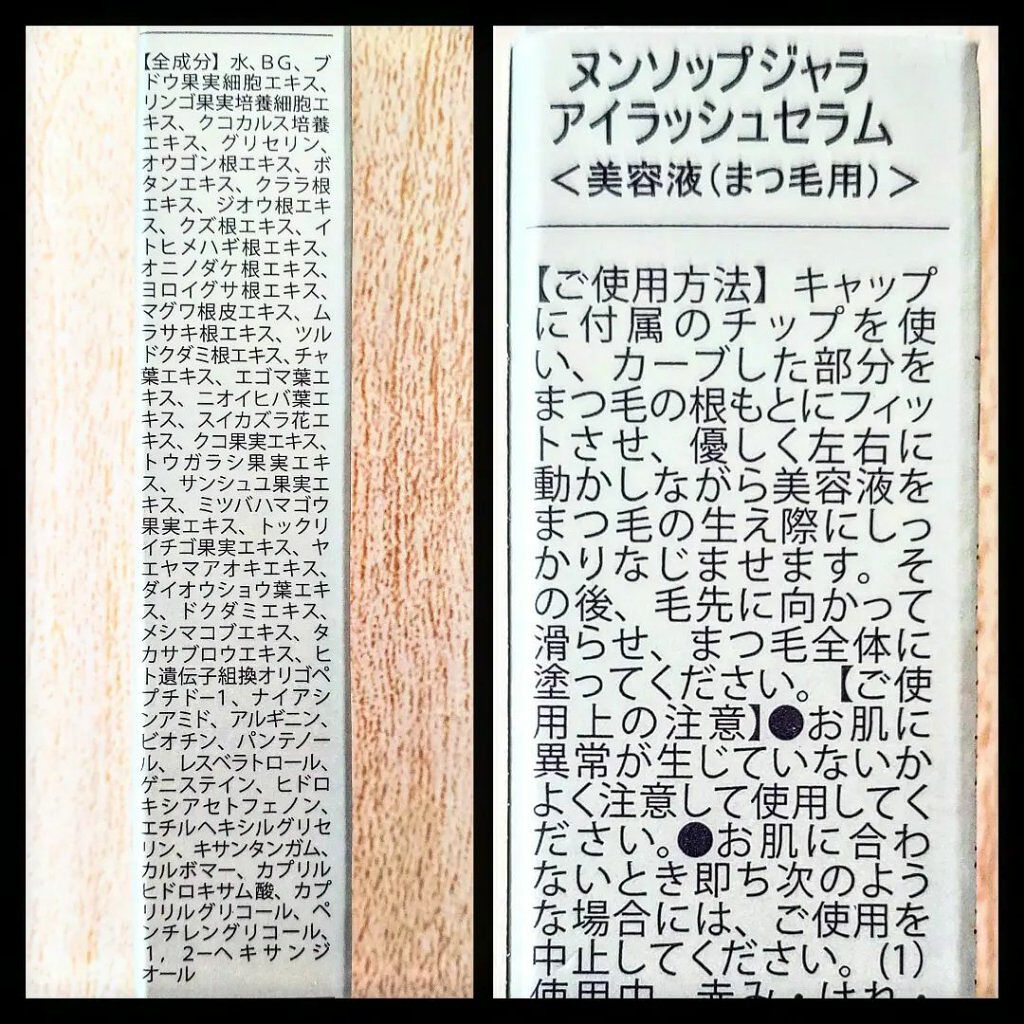 【全成分】水、BG、ブ
ドウ果実細胞エキス、
リンゴ果実培養細胞エ
キス、クコカルス培養
エキス、グリセリン、
オウゴン根エキス、ボ
タンエキス、クララ根
エキス、ジオウ根エキ
ス、クズ根エキス、イ
トヒメハギ根エキス、
オニノダケ根エキス、
ヨロイグサ根エキス、
マグワ根皮エキス、ム
ラサキ根エキス、ツル
ドクダミ根エキス、チャ
葉エキス、エゴマ葉エ
キス、ニオイヒバ葉エ
キス、スイカズラ花エ
キス、クコ果実エキス、
トウガラシ果実エキ
ス、サンシュユ果実エ
キス、ミツバハマゴウ
果実エキス、トックリ
イチゴ果実エキス、ヤ
エヤマアオキエキス、
ダイオウショウ葉エキ
ス、ドクダミエキス、
メシマコブエキス、タ
カサブロウエキス、ヒ
ト遺伝子組換オリゴペ
プチドー1、ナイアシ
ンアミド、アルギニン、
ビオチン、パンテノー
ル、レスベラトロール、
ゲニステイン、ヒドロ
キシアセトフェノン、
エチルヘキシルグリセ
リン、キサンタンガム、
カルボマー、カプリル
ヒドロキサム酸、カプ
リリルグリコール、ペ
ンチレングリコール、
1，2ーヘキサンジ
オール
ヌンソップジャラ
アイラッシュセラム
＜美容液(まつ毛用)＞
【ご使用方法】キャップ
に付属のチップを使
い、カーブした部分を
まつ毛の根もとにフィッ
トさせ、優しく左右に
動かしながら美容液を
まつ毛の生え際にしっ
かりなじませます。そ
の後、毛先に向かって
滑らせ、まつ毛全体に
塗ってください。【ご使
用上の注意】●お肌に
異常が生じていないか
よく注意して使用してく
ださい。●お肌に合わ
ないとき即ち次のよう
な場合には、ご使用を
中止してください。(1)
使用中、赤み・はれ・